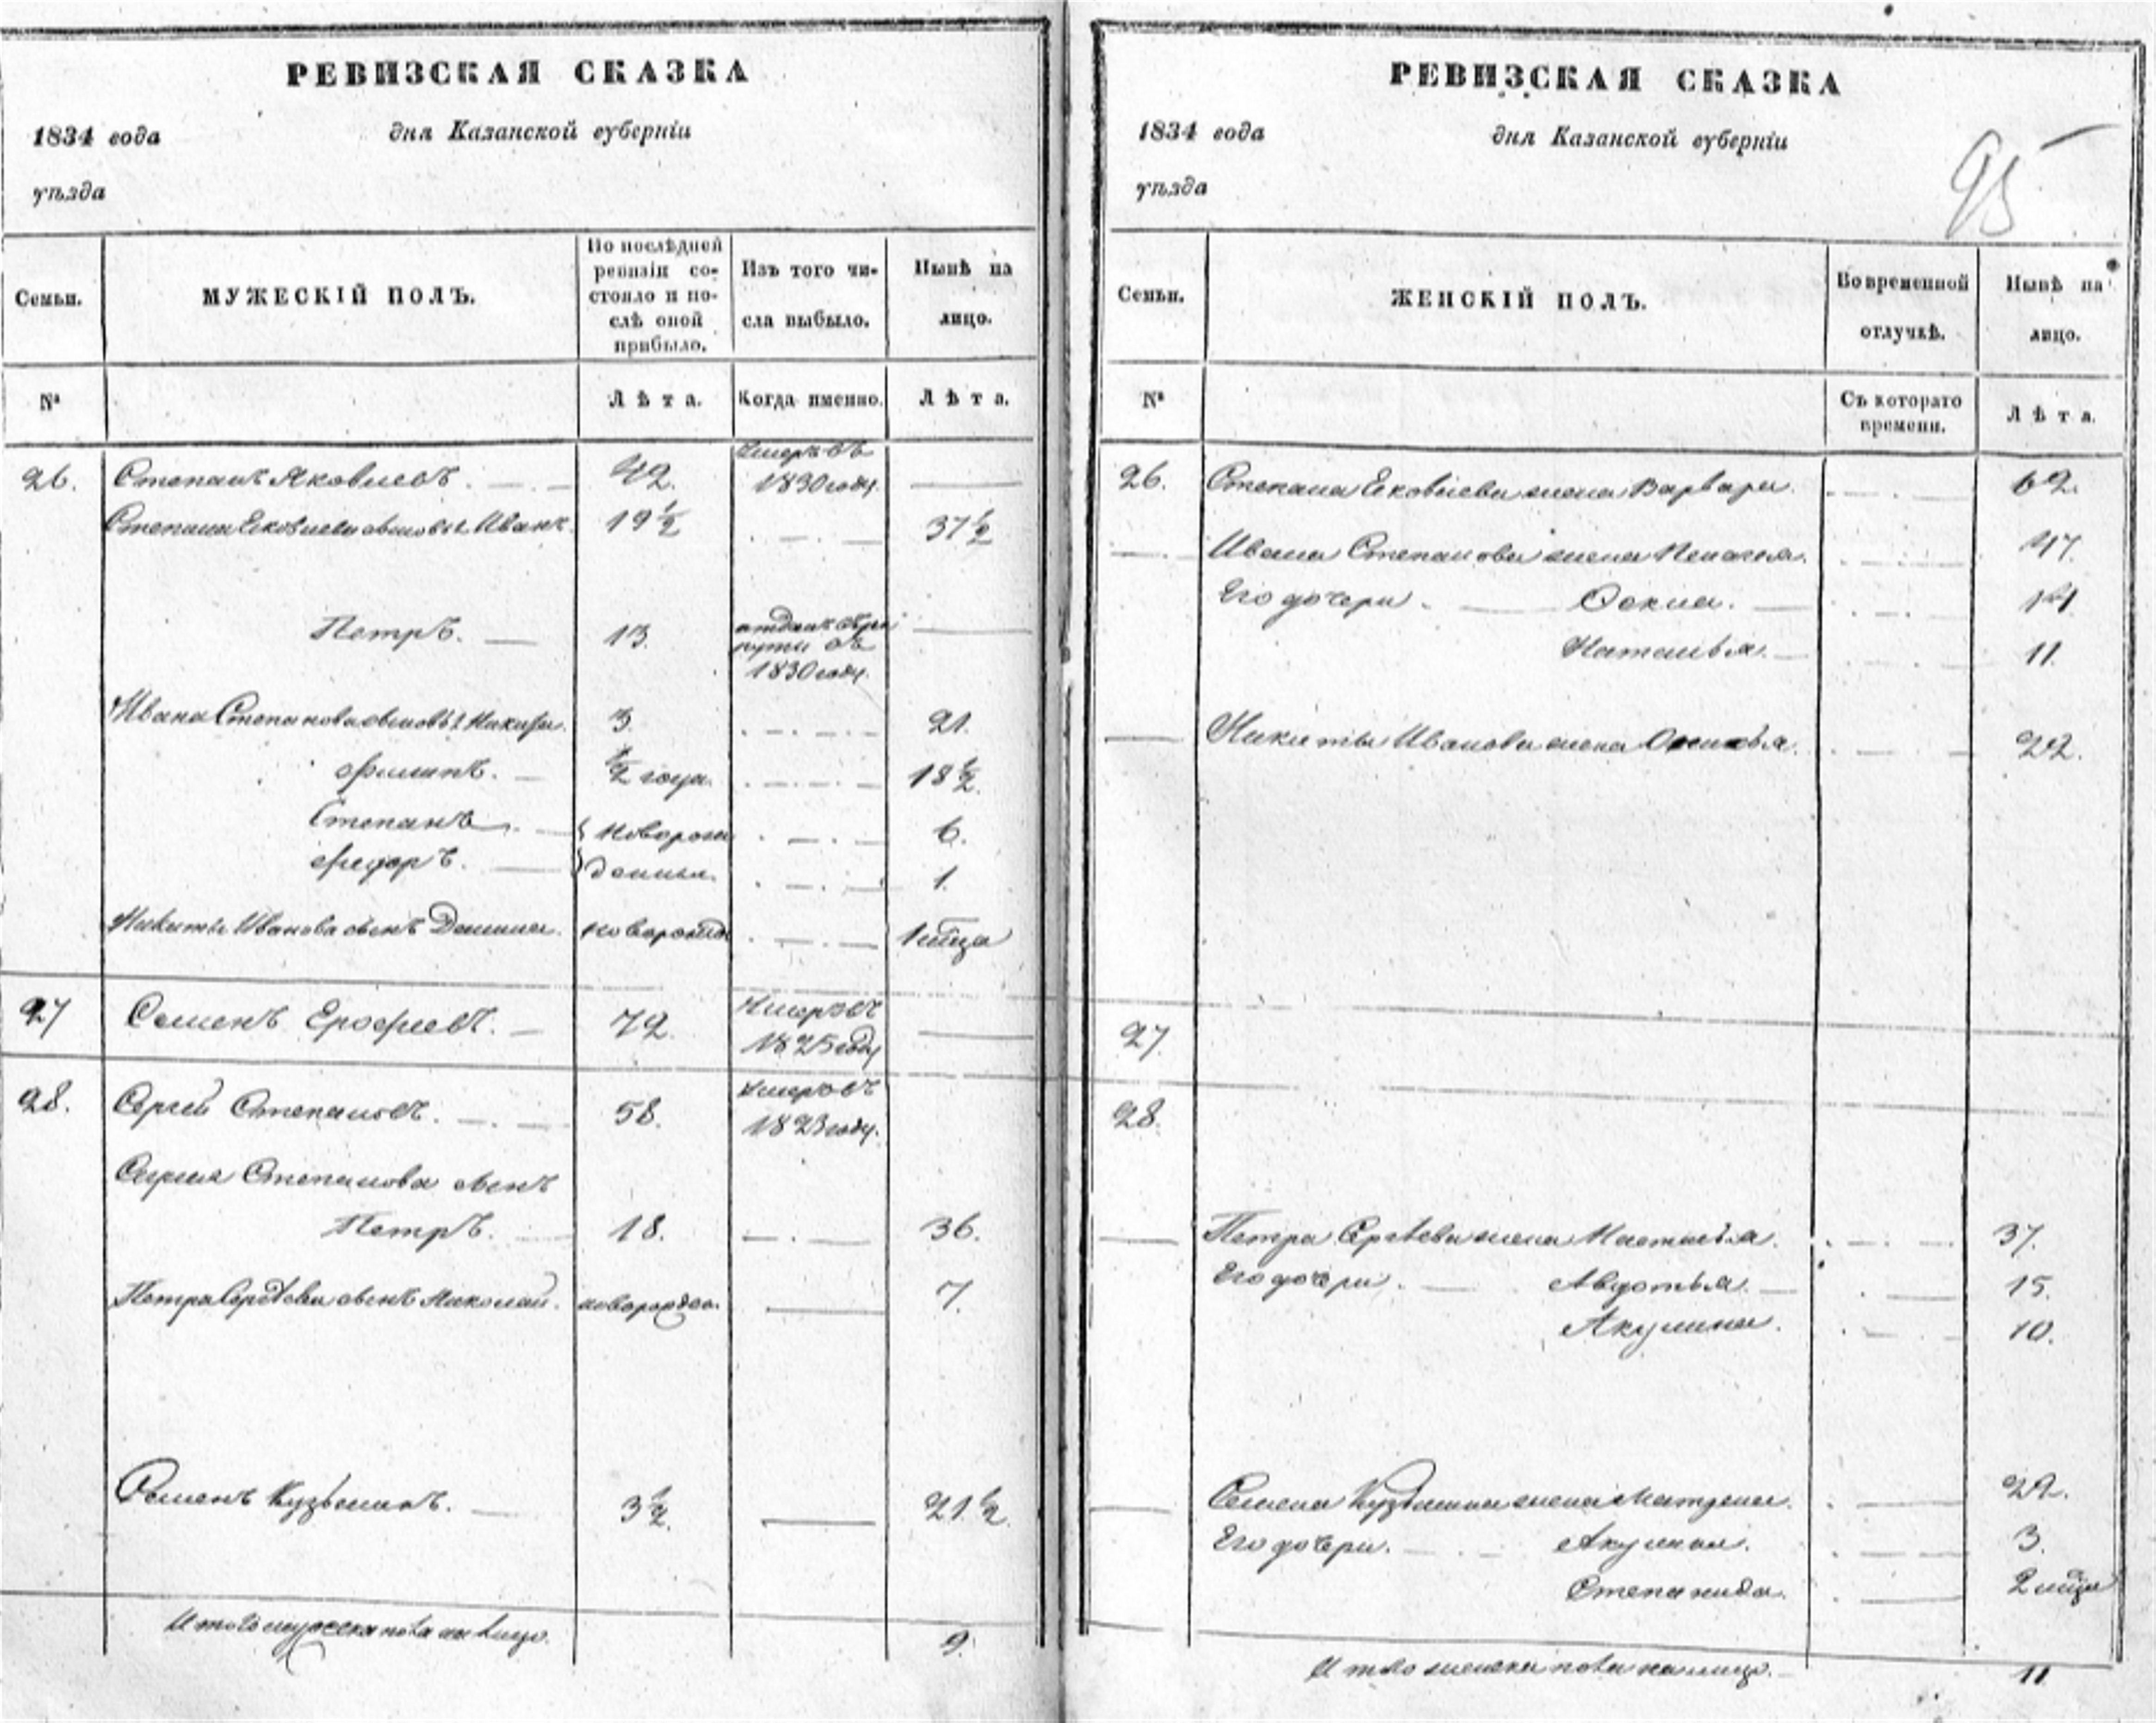 РЕВИЗСКАЯ СКАЗКА
1834 года дня Казанской губерніи
уѣзда
Семьи. МУЖЕСКІЙ ПОЛЪ. По послѣдней ревизіи состояло и послѣ оной прибыло. Изъ того числа выбыло. Нынѣ на лицо.
№ Лѣта. Когда именно. Лѣта.
26. Степанъ Яковлевъ. 42. Умеръ въ 1830 году.
Степана Яковлева сыновья Иванъ. 19 1/2 37 1/2
Петръ. 13. отданъ въ рекруты въ 1830 году.
Ивана Степанова сыновья Никита. 3. 21.
Филипъ. 1/2 года. 18 1/2.
Степанъ. новорож 6.
Федоръ. денныя. 1.
Никиты Иванова сынъ Данила. новорожд 1 мѣся
27 Семенъ Ерофеевъ. 72. Умеръ въ 1825 году
28. Сергей Степановъ. 58. Умеръ въ 1823 году.
Сергея Степанова сынъ
Петръ. 18. 36.
Петра Сергѣева сынъ Николай. новорожден. 7.
Семенъ Кузьминъ. 3 1/2. 21 1/2.
Итого мужеска пола на лицо. 9.
РЕВИЗСКАЯ СКАЗКА
1834 года дня Казанской губерніи
уѣзда
95
Семьи. ЖЕНСКІЙ ПОЛЪ. Во временной отлучкѣ. Нынѣ на лицо.
№ Съ котораго времени. Лѣта.
26. Степана Яковлева жена Варвара. 62.
Ивана Степанова жена Пелагея. 47.
Его дочери. 14.
Наталья. 11.
Никиты Иванова жена 22.
27.
28.
Петра Сергѣева жена Настасья. 37.
Его дочери. Авдотья. 15.
Акулина. 10.
Семена Кузьмина жена Матрена. 22.
Его дочери. Акулина. 3.
Степанида. 2 мѣся
Итого женска пола на лицо. 11